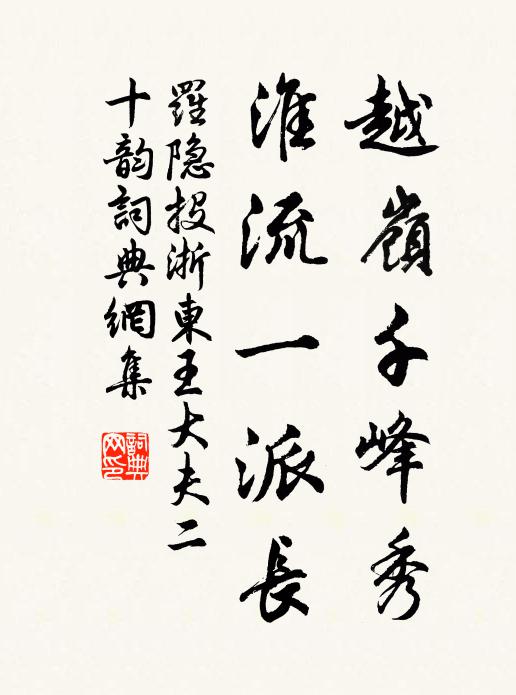 越嶺千峰秀
淮流一派長
羅隐投浙東王大夫二
十韵詞典網集
詞典
网印